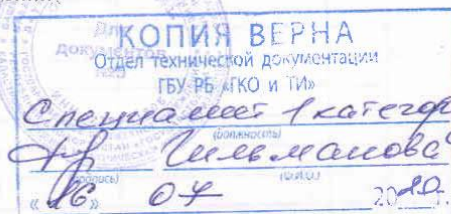 Для
документов
КОПИЯ ВЕРНА
Отдел технической документации
ГБУ РБ «ГКО и ТИ»
Специалист 1 категор
(должность)
Гильманова
(подпись) (Ф.И.О.)
«16» 07 2020 г.